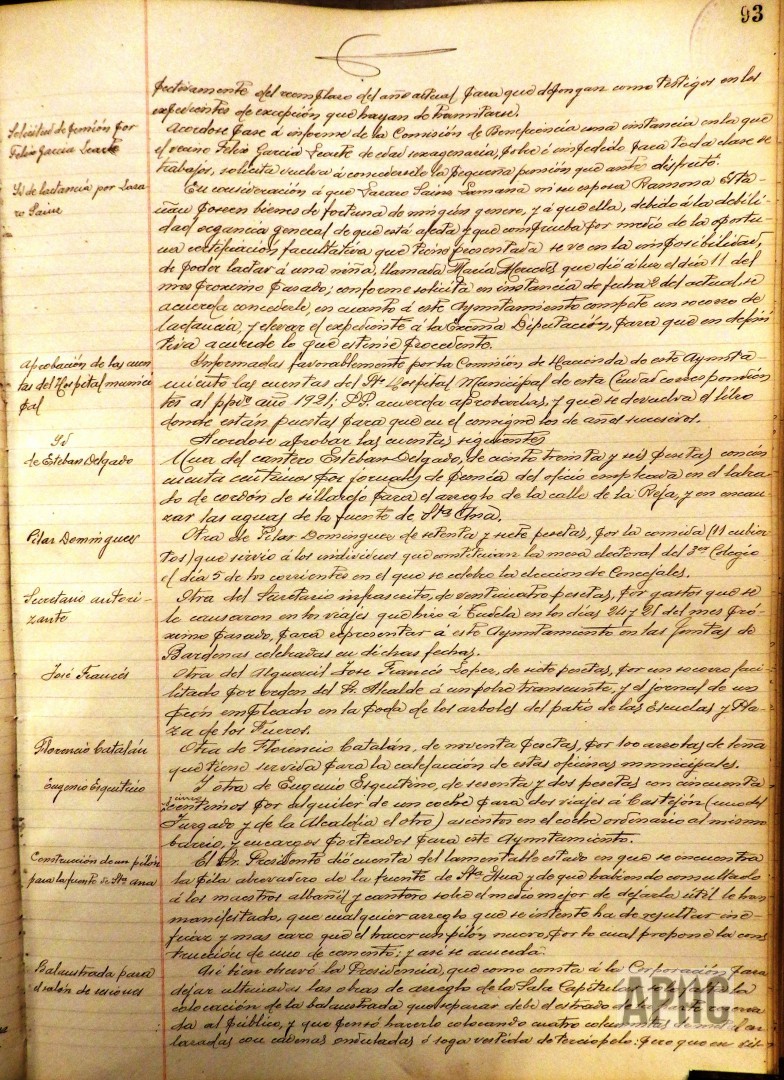 93
pectivamente del reemplazo del año actual para que depongan como testigos en los
expedientes de excepción que hayan de tramitarse.
Solicitud de pensión por
Felix Garcia Learte
Acordose pase á informe de la Comisión de Beneficencia una instancia en la que
el vecino Felix Garcia Learte de edad sexagenaria, pobre é impedido para toda clase de
trabajos, solicita vuelva á concedersele la pequeña pensión que antes disfrutó.
Id de lactancia por Laza-
ro Sainz
En consideración á que Lazaro Sainz Lamana ni su esposa Ramona
poseen bienes de fortuna de ningún genero, y á que ella, debido á la debili-
dad organica general de que está afecta y que comprueba por medio de la oportu-
na certificación facultativa que tiene presentada se ve en la imposibilidad,
de poder lactar á una niña, llamada María Mercedes que dió á luz el dia 11 del
mes proximo pasado; conforme solicita en instancia de fecha 2 del actual, se
acuerda concederle, en cuanto á este Ayuntamiento compete un socorro de
lactancia, y elevar el expediente á la Excma Diputación, para que en defini-
tiva acuerde lo que estime procedente.
Aprobación de las cuen-
tas del Hospital munici-
pal
Informadas favorablemente por la Comisión de Hacienda de este Ayunta-
miento las cuentas del Sto Hospital Municipal de esta Ciudad correspondien-
tes al ppdo año 1921; SS. acuerda aprobarlas, y que se devuelva el libro
donde están puestas para que en el consigne los de años sucesivos.
Acordose aprobar las cuentas siguientes
Id
de Esteban Delgado
Una del cantero Esteban Delgado, de ciento treinta y seis pesetas con cin-
cuenta centimos por jornales de peonía del oficio empleada en el labra-
do de cordón de sillarejo para el arreglo de la calle de la Reja, y en encau-
zar las aguas de la fuente de Sta Ana.
Pilar Dominguez
Otra de Pilar Dominguez de setenta y siete pesetas, por la comida (11 cubier-
tos) que sirvio á los individuos que constituian la mesa electoral del 3er Colegio
el dia 5 de los corrientes en el que se celebro la eleccion de Concejales.
Secretario autori-
zante
Otra del Secretario infrascrito, de veinticuatro pesetas, por gastos que se
le causaron en los viajes que hizo á Tudela en los días 24 y 21 del mes pró-
ximo pasado, para representar á este Ayuntamiento en las Juntas de
Bardenas celebradas en dichas fechas.
José Francés
Otra del Alguacil Jose Francés Lopez, de siete pesetas, por un socorro faci-
litado por orden del Sr. Alcalde á un pobre transeunte, y el jornal de un
peón empleado en la poda de los arboles del patio de las Escuelas y Pla-
za de los Fueros.
Florencio Catalán
Otra de Florencio Catalán, de noventa pesetas, por 100 arrobas de leña
que tiene servida para la calefacción de estas oficinas municipales.
Eugenio Esquitino
Y otra de Eugenio Esquitino, de sesenta y dos pesetas con cincuenta
centimos por alquiler de un coche para dos viajes á Castejón (uno del
Juzgado y de la Alcaldía el otro) asientos en el coche ordinario al mismo
barrio, y encargos porteados para este Ayuntamiento.
Construcción de un pilón
para la fuente de Sta Ana
El Sr. Presidente dió cuenta del lamentable estado en que se encuentra
la pila abrevadero de la fuente de Sta Ana y de que habiendo consultado
á los maestros albañil y cantero sobre el medio mejor de dejarla útil le han
manifestado, que cualquier arreglo que se intente ha de resultar ine-
ficaz y mas caro que el hacer un pilón nuevo, por lo cual propone la cons-
trucción de uno de cemento; y asi se acuerda.
Balaustrada para
el salón de sesiones
Asi bien observó la Presidencia, que como consta á la Corporación para
dejar ultimadas las obras de arreglo de la Sala Capitular la
colocación de la balaustrada que separar debe el estrado de la parte
da al público, y que pensó hacerlo colocando cuatro columnitas
lazadas con cadenas onduladas ó soga vestida de terciopelo: pero que en
APMC